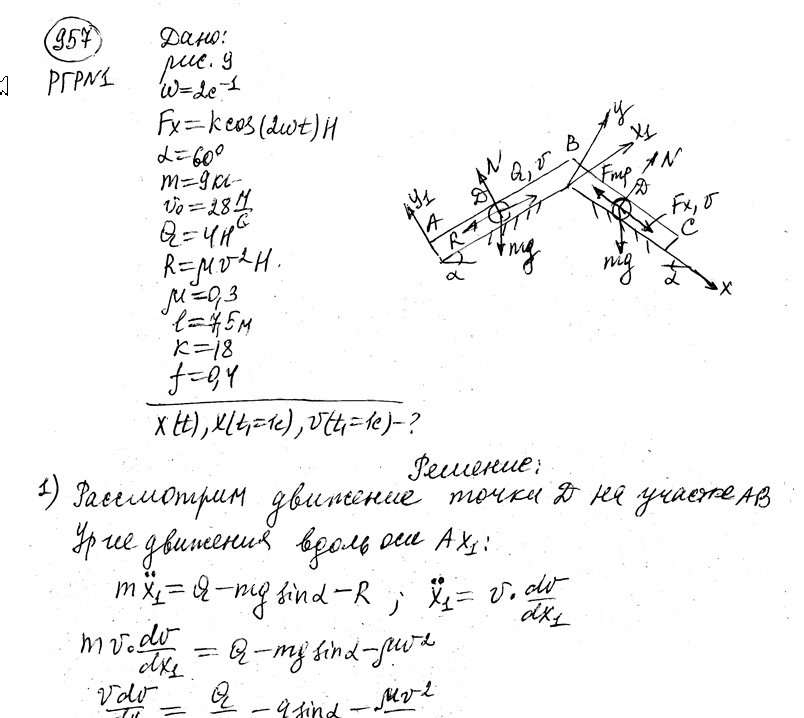 957
РГР№1
Дано:
рис. 9
ω=2с⁻¹
Fx=kcos(2ωt)Н
α=60°
m=9кг
v₀=28 м/с
Q=4Н
R=μv²Н.
μ=0,3
l=7,5м
k=18
f=0,4
x(t), x(t₁=1с), v(t₁=1с)-?
y₁
A
R
D
N
Q, v
B
y
x₁
N
Fтр
D
Fx, v
C
mg
mg
α
α
x
Решение:
1) Рассмотрим движение точки D на участке AB
Ур-ие движения вдоль оси Ax₁:
mẍ₁=Q-mg sinα-R ; ẍ₁= v·dv/dx₁
mv·dv/dx₁ = Q-mg sinα-μv²
vdv = Q - g sinα - μv²